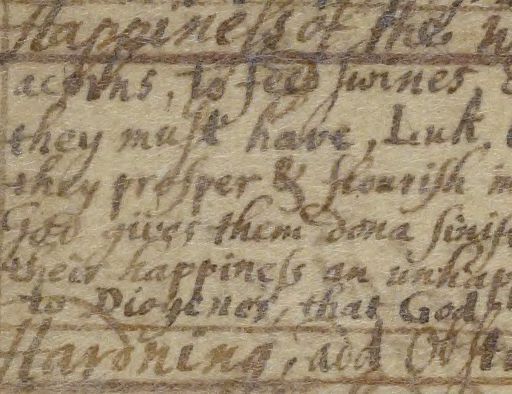 Happiness of the
acorns, to feed swines
they must have, Luk.
they prosper & flourish
God gives them dona
their happiness an unhap
to Diogenes, that God
Hardning, add Obst